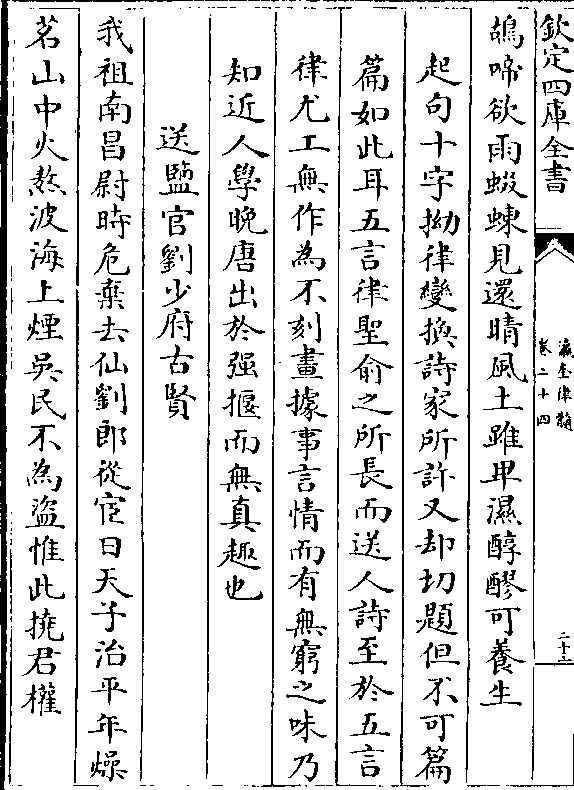 欽定四庫全書
瀛奎律髓
卷二十四
二十二
鴣啼欲雨蝃蝀見還晴風土雖卑濕醇醪可養生
起句十字拗律變換詩家所許又却切題但不可篇
篇如此耳五言律聖俞之所長而送人詩至於五言
律尤工無作為不刻畫據事言情而有無窮之味乃
知近人學晚唐出於强揠而無真趣也
送鹽官劉少府古賢
我祖南昌尉時危棄去仙劉郎從宦日天子治平年燥
茗山中火熬波海上煙吳民不為盜惟此撓君權